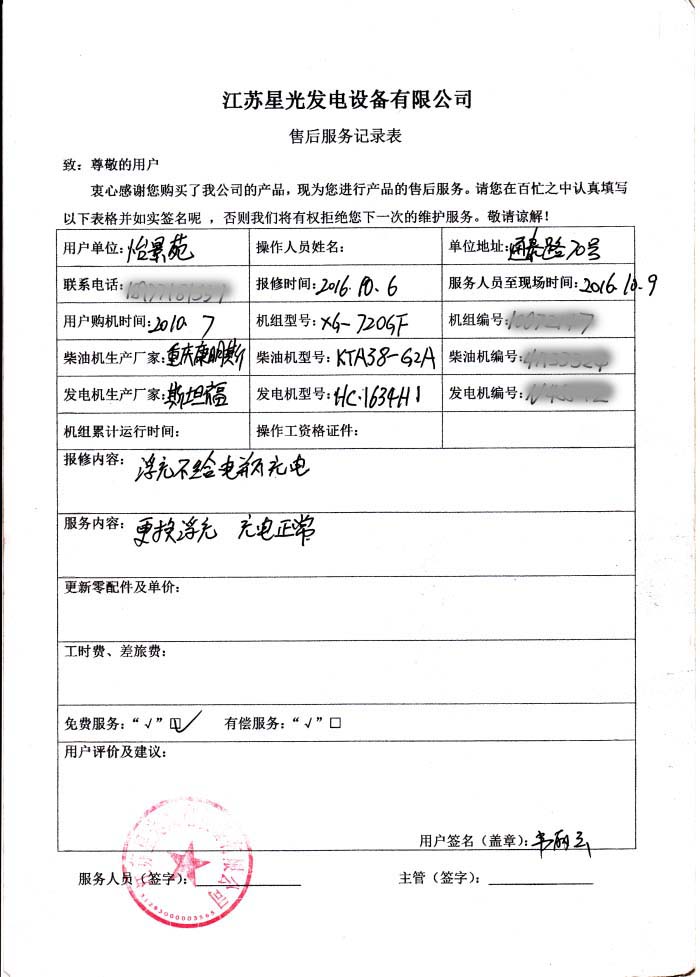 江苏星光发电设备有限公司
售后服务记录表
致：尊敬的用户
衷心感谢您购买了我公司的产品，现为您进行产品的售后服务。请您在百忙之中认真填写
以下表格并如实签名呢 ，否则我们将有权拒绝您下一次的维护服务。敬请谅解！
用户单位：怡景苑 操作人员姓名： 单位地址：通泰路70号
联系电话： 报修时间：2016.10.6 服务人员至现场时间：2016.10.9
用户购机时间：2010 7 机组型号：XG-720GF 机组编号：
柴油机生产厂家：重庆康明斯 柴油机型号：KTA38-G2A 柴油机编号：
发电机生产厂家：斯坦福 发电机型号：HC.1634H1 发电机编号：
机组累计运行时间： 操作工资格证件：
报修内容：浮充不给电瓶充电
服务内容：更换浮充 充电正常
更新零配件及单价：
工时费、差旅费：
免费服务：“√”□√ 有偿服务：“√”□
用户评价及建议：
用户签名（盖章）：
服务人员（签字）： 主管（签字）：